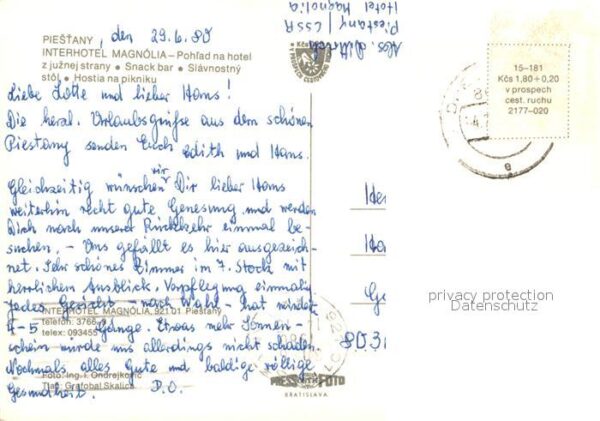 PIEŠŤANY, den 29.6.80
INTERHOTEL MAGNÓLIA – Pohľad na hotel
z južnej strany • Snack bar • Slávnostný
stôl • Hostia na pikniku
Liebe Lotte und lieber Hans!
Die herzl. Urlaubsgrüße aus dem schönen
Piestany senden Euch Edith und Hans.
Gleichzeitig wünschen wir Dir lieber Hans
weiterhin recht gute Genesung und werden
Dich nach unserer Rückkehr einmal be-
suchen. – Uns gefällt es hier ausgezeich-
net. Sehr schönes Zimmer im 7. Stock mit
herrlichem Ausblick. Verpflegung einmalig
Jedes Gericht – nach Wahl – hat mindest.
4-5 Gänge. Etwas mehr Sonnen-
schein würde uns allerdings nicht schaden.
Nochmals alles Gute und baldige völlige
Gesundheit. D.O.
INTERHOTEL MAGNÓLIA, 921 01 Piešťany
telefón: 3766
telex: 093455
Foto: Ing. I. Ondrejkovič
Tlač: Grafobal Skalica
Piestany / ČSSR
Hotel Magnolia
Kčs
15–181
Kčs 1,80 + 0,20
v prospech
cest. ruchu
2177–020
PRESSFOTO
BRATISLAVA
privacy protection
Datenschutz